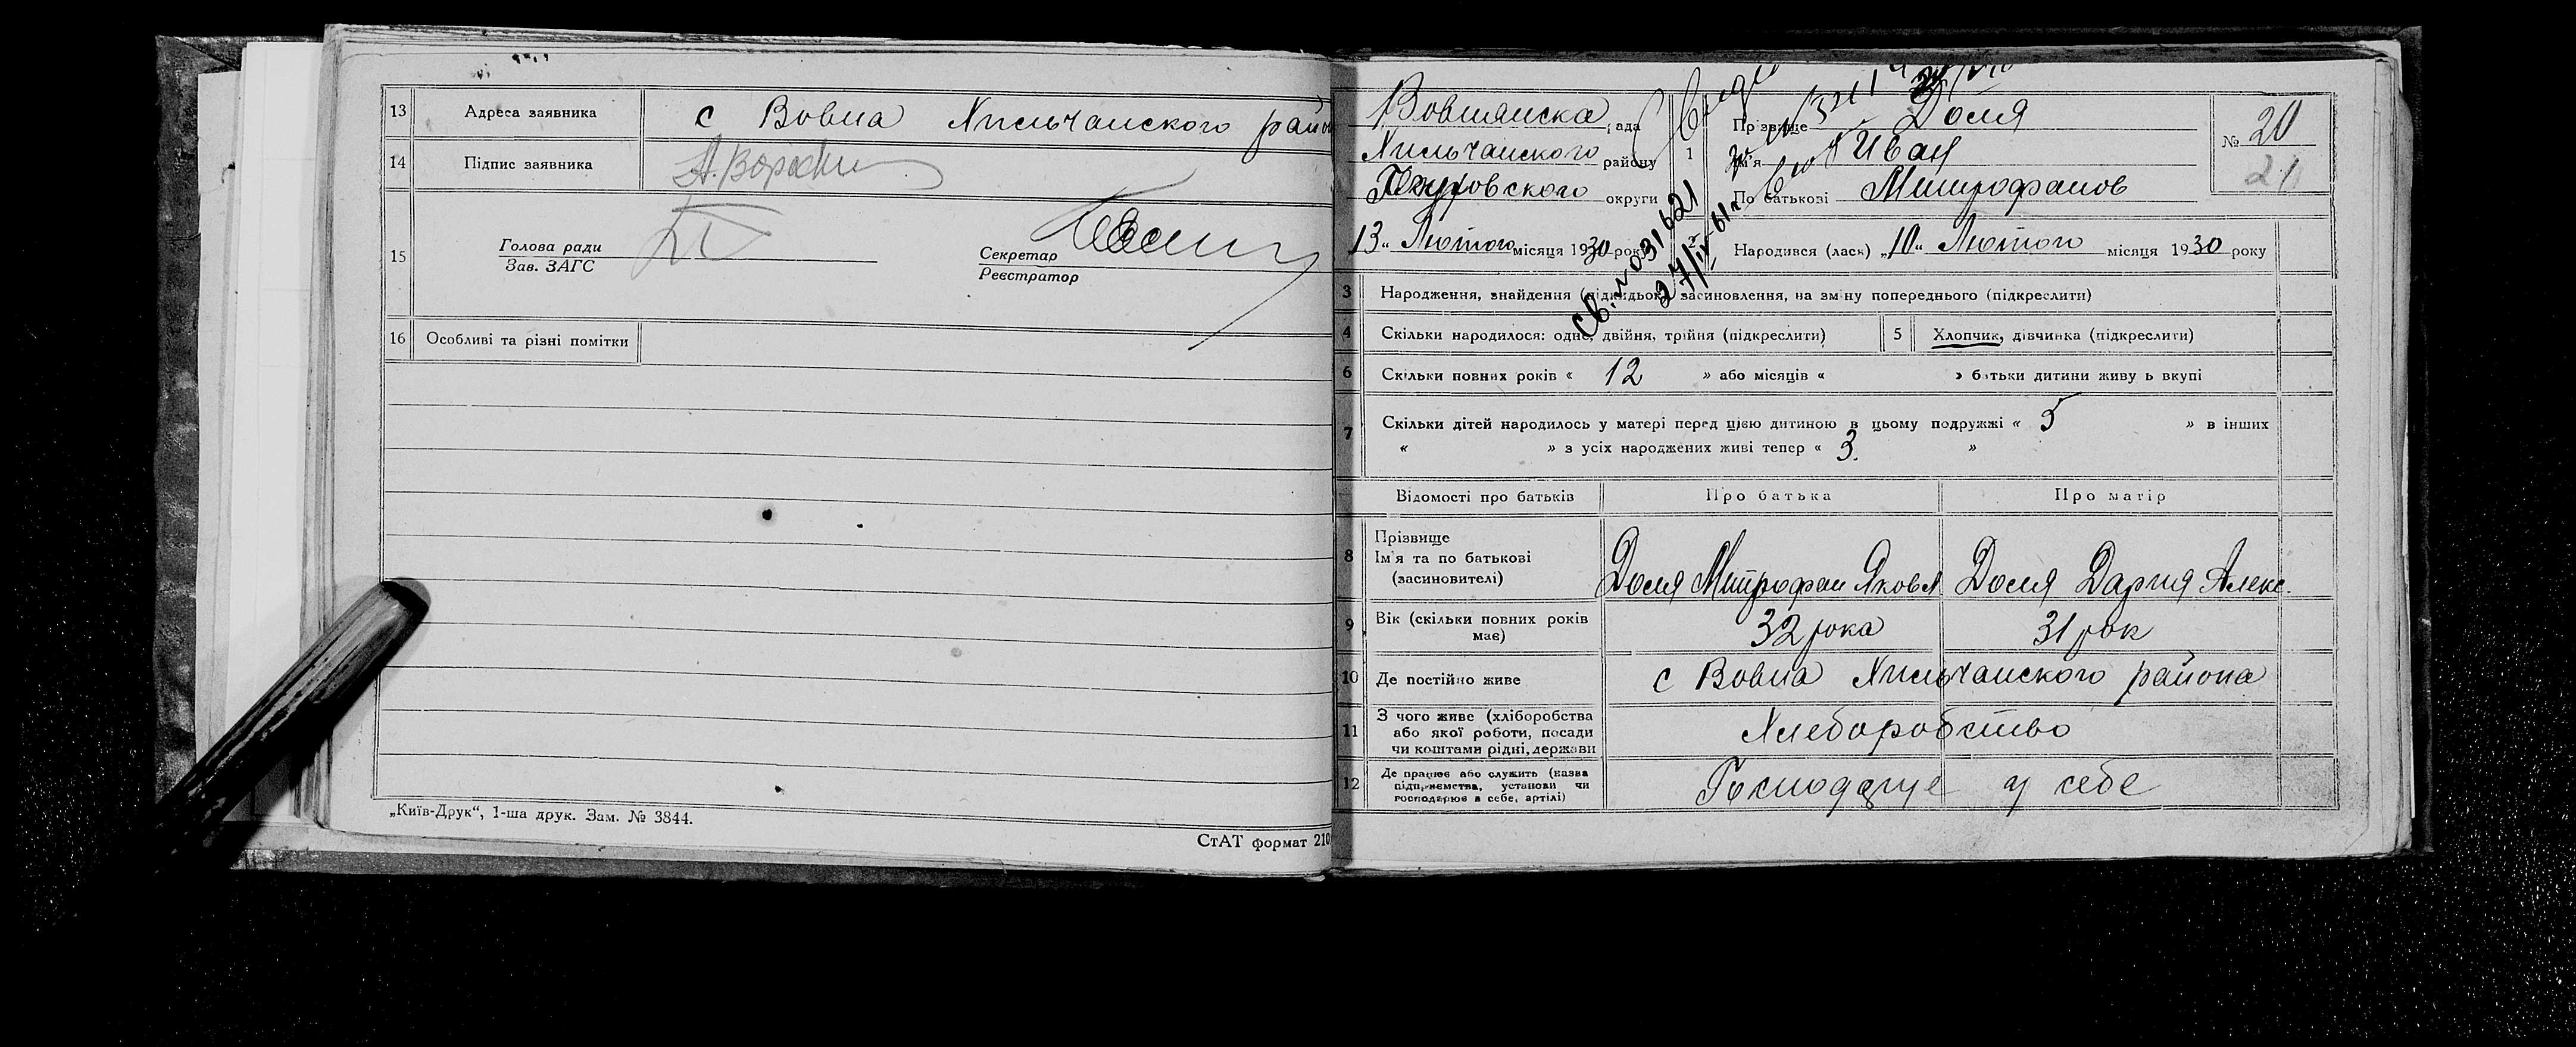 13 Адреса заявника с Вовна Хильчанского район
14 Підпис заявника
15 Голова ради
Зав. ЗАГС
Секретар
Реєстратор
16 Особливі та різні помітки
„Київ-Друк“, 1-ша друк. Зам. № 3844.
СтАТ формат 210
Вовнянска рада
Хильчанского району
округи
13 „ Лютого місяця 1930 року
Св. № 031621
27/IV-61 г
1 Прізвище Доля
Ім'я Иван
По батькові Митрофанов
№ 20
21
2 Народився (лась) „10 „ Лютого місяця 1930 року
3 Народження, знайдення (підкидьок) засиновлення, на зміну попереднього (підкреслити)
4 Скільки народилося: одне, двійня, трійня (підкреслити) 5 Хлопчик, дівчинка (підкреслити)
6 Скільки повних років « 12 » або місяців « » батьки дитини живуть вкупі
7 Скільки дітей народилось у матері перед цією дитиною в цьому подружжі « 5 » в інших
« » з усіх народжених живі тепер « 3. »
Відомості про батьків Про батька Про матір
8 Прізвище
Ім'я та по батькові
(засиновителі)
Доля Митрофан Яковл Доля Дария Алекс.
9 Вік (скільки повних років
має)
32 рока 31 рок
10 Де постійно живе с Вовна Хильчанского района
11 З чого живе (хліборобства
або якої роботи, посади
чи коштами рідні, держави
Хлеборобство
12 Де працює або служить (назва
підприємства, установи чи
господарює в себе, артілі)
Господарує у себе